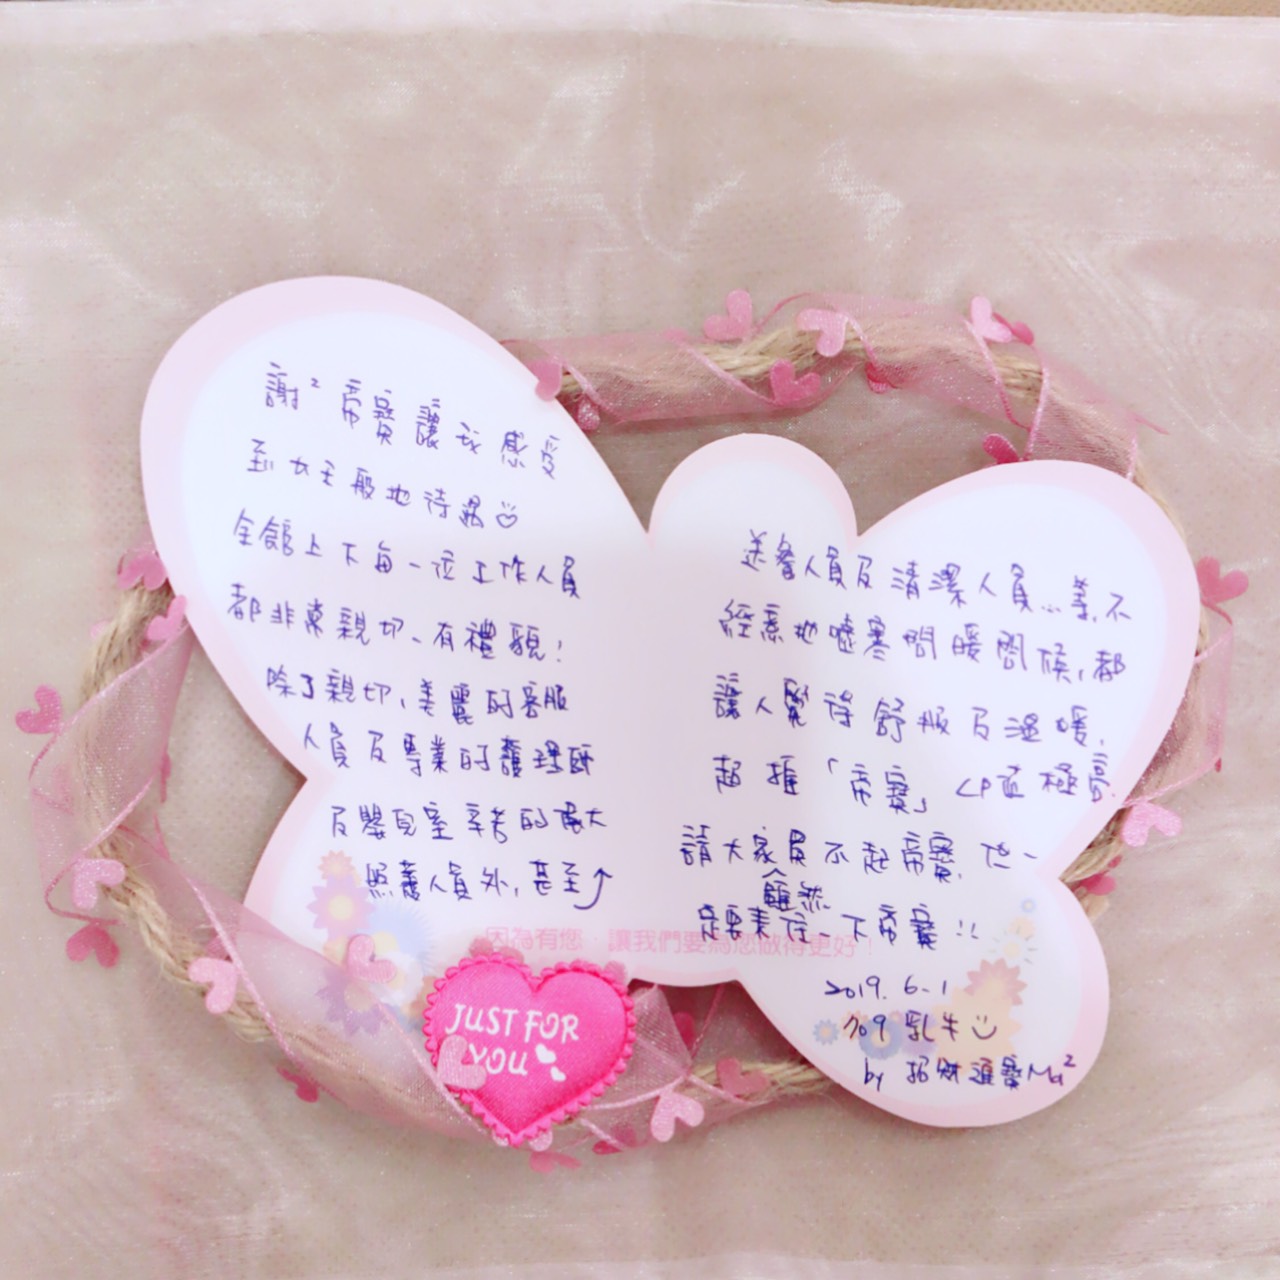 謝²帝寶讓我感受
到女王般地待遇
全館上下每一位工作人員
都非常親切、有禮貌！
除了親切、美麗的客服
人員及專業的護理師
及嬰兒室辛苦的
照護人員外，甚至
送餐人員及清潔人員…等，不
經意地噓寒問暖問候，都
讓人覺得舒服及溫暖，
超推「帝寶」CP值極高，
請大家 不起帝寶，也一
雖然
定要來住一下帝寶!!
因為有您‧讓我們要為您做得更好！
2019. 6-1
709 乳牛
by 招財進寶Ma²
JUST FOR
YOU